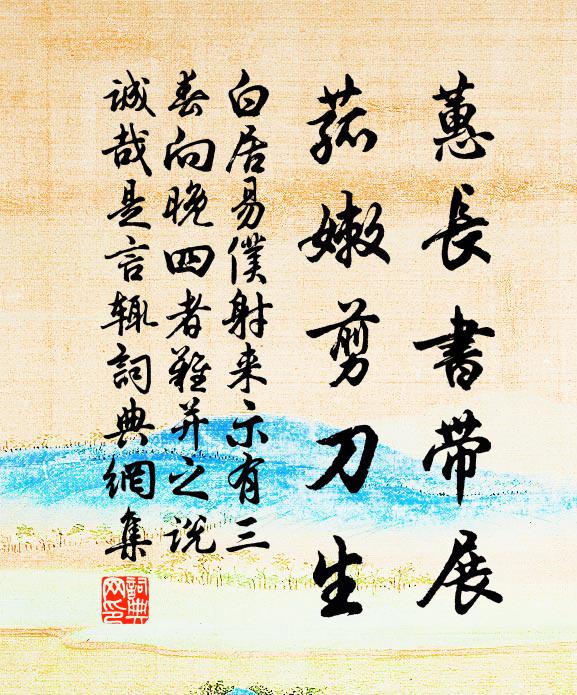 蕙長書帶展
菰嫩剪刀生
白居易僕射来示有三
春向晚四者難并之说
誠哉是言辄詞典網集
詞典
网印